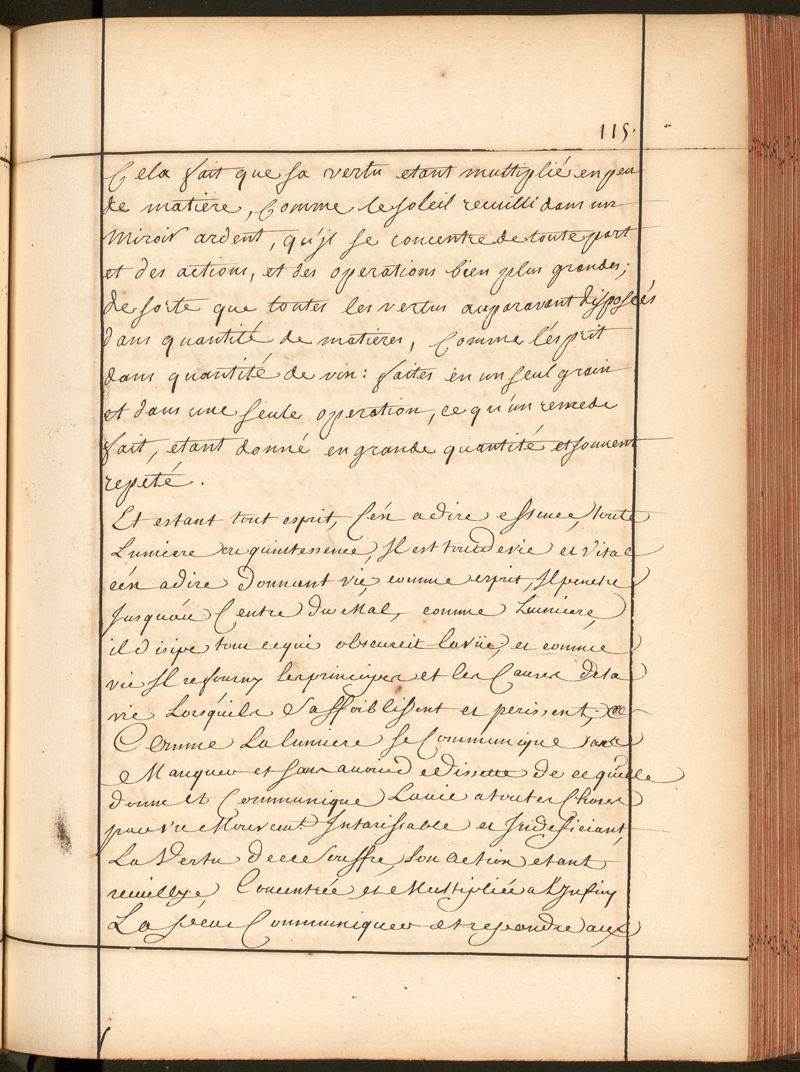 115.
Cela fait que sa vertu etant multiplié en peu
de matiere, Comme le soleil recuilli dans un
Miroir ardent, qu'jl se concentre de toute part
et des actions, et des operations bien plus grandes;
de sorte que toutes les vertus auparavant disposées
dans quantité de matieres, Comme l'esprit
dans quantité de vin: faites en un seul grain
et dans une seule operation, ce qu'un remede
fait, etant donné en grande quantité et souvent
repeté.
Et estant tout esprit, C'én adire essence, toute
Lumiere et quintessence, Il est tout de vie et vital
c'én adire Donnant vie, comme esprit, Il penetre
Jusqu'au Centre du Mal, comme Lumiere,
il disipe tout ce qui obscurcit la vüe, et comme
vie Il refourny les principes et les Causes de la
vie Lorsquils S'affoiblissent et perissent, &
Comme La lumiere se Communique sans
Manquer et sans avoir disette de ce qu'elle
donne et Communique La vie a toutes Choses
par un Mouvent. Intarissable et Indeficiant,
La Vertu de ce souffre, son action etant
recuillye Concentrée et Multipliée a l'Jnfiny
La peut Communiquer et repandre aux